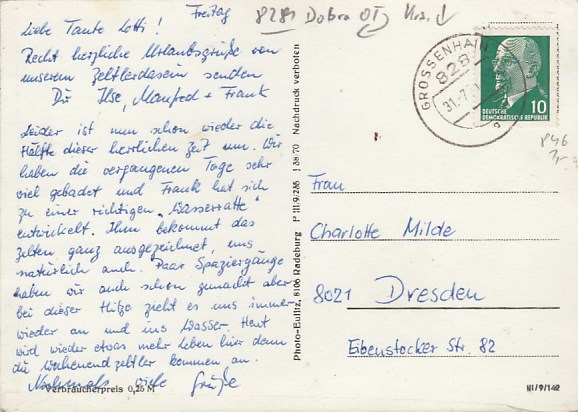 Freitag
Liebe Tante Lotti!
Recht herzliche Urlaubsgrüße von
unserem Zeltlerdasein senden
Dir Ilse, Manfred + Frank
Leider ist nun schon wieder die
Hälfte dieser herrlichen Zeit um. Wir
haben die vergangenen Tage sehr
viel gebadet und Frank hat sich
zu einer richtigen „Wasserratte"
entwickelt. Ihm bekommt das
Zelten ganz ausgezeichnet, uns
natürlich auch. Paar Spaziergänge
haben wir auch schon gemacht aber
bei dieser Hitze zieht es uns immer
wieder an und ins Wasser. Heut
wird wieder etwas mehr Leben hier denn
die Wochenendzeltler kommen an.
Nochmals viele Grüße
Verbraucherpreis 0,25 M
Photo-Eulitz, 8106 Radeburg P III/9/286 J 38/70 Nachdruck verboten
8281 Dobra
GROSSENHAIN
828
31.-7.
10
DEUTSCHE
DEMOKRATISCHE REPUBLIK
Frau
Charlotte Milde
8021 Dresden
Eibenstocker Str. 82
III/9/142